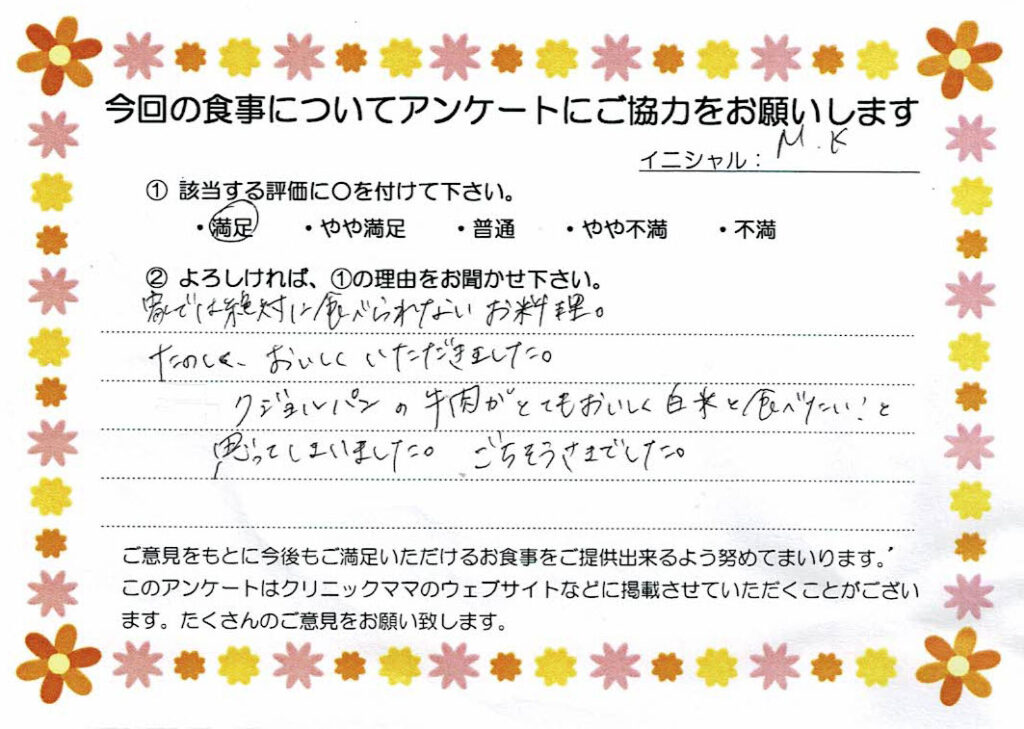 今回の食事についてアンケートにご協力をお願いします
イニシャル： M.K
① 該当する評価に〇を付けて下さい。
・満足 ・やや満足 ・普通 ・やや不満 ・不満
② よろしければ、①の理由をお聞かせ下さい。
家では絶対に食べられないお料理。
たのしく、おいしくいただきました。
クジョルパンの牛肉がとてもおいしく白米と食べたい！と
思ってしまいました。 ごちそうさまでした。
ご意見をもとに今後もご満足いただけるお食事をご提供出来るよう努めてまいります。
このアンケートはクリニックママのウェブサイトなどに掲載させていただくことがござい
ます。たくさんのご意見をお願い致します。